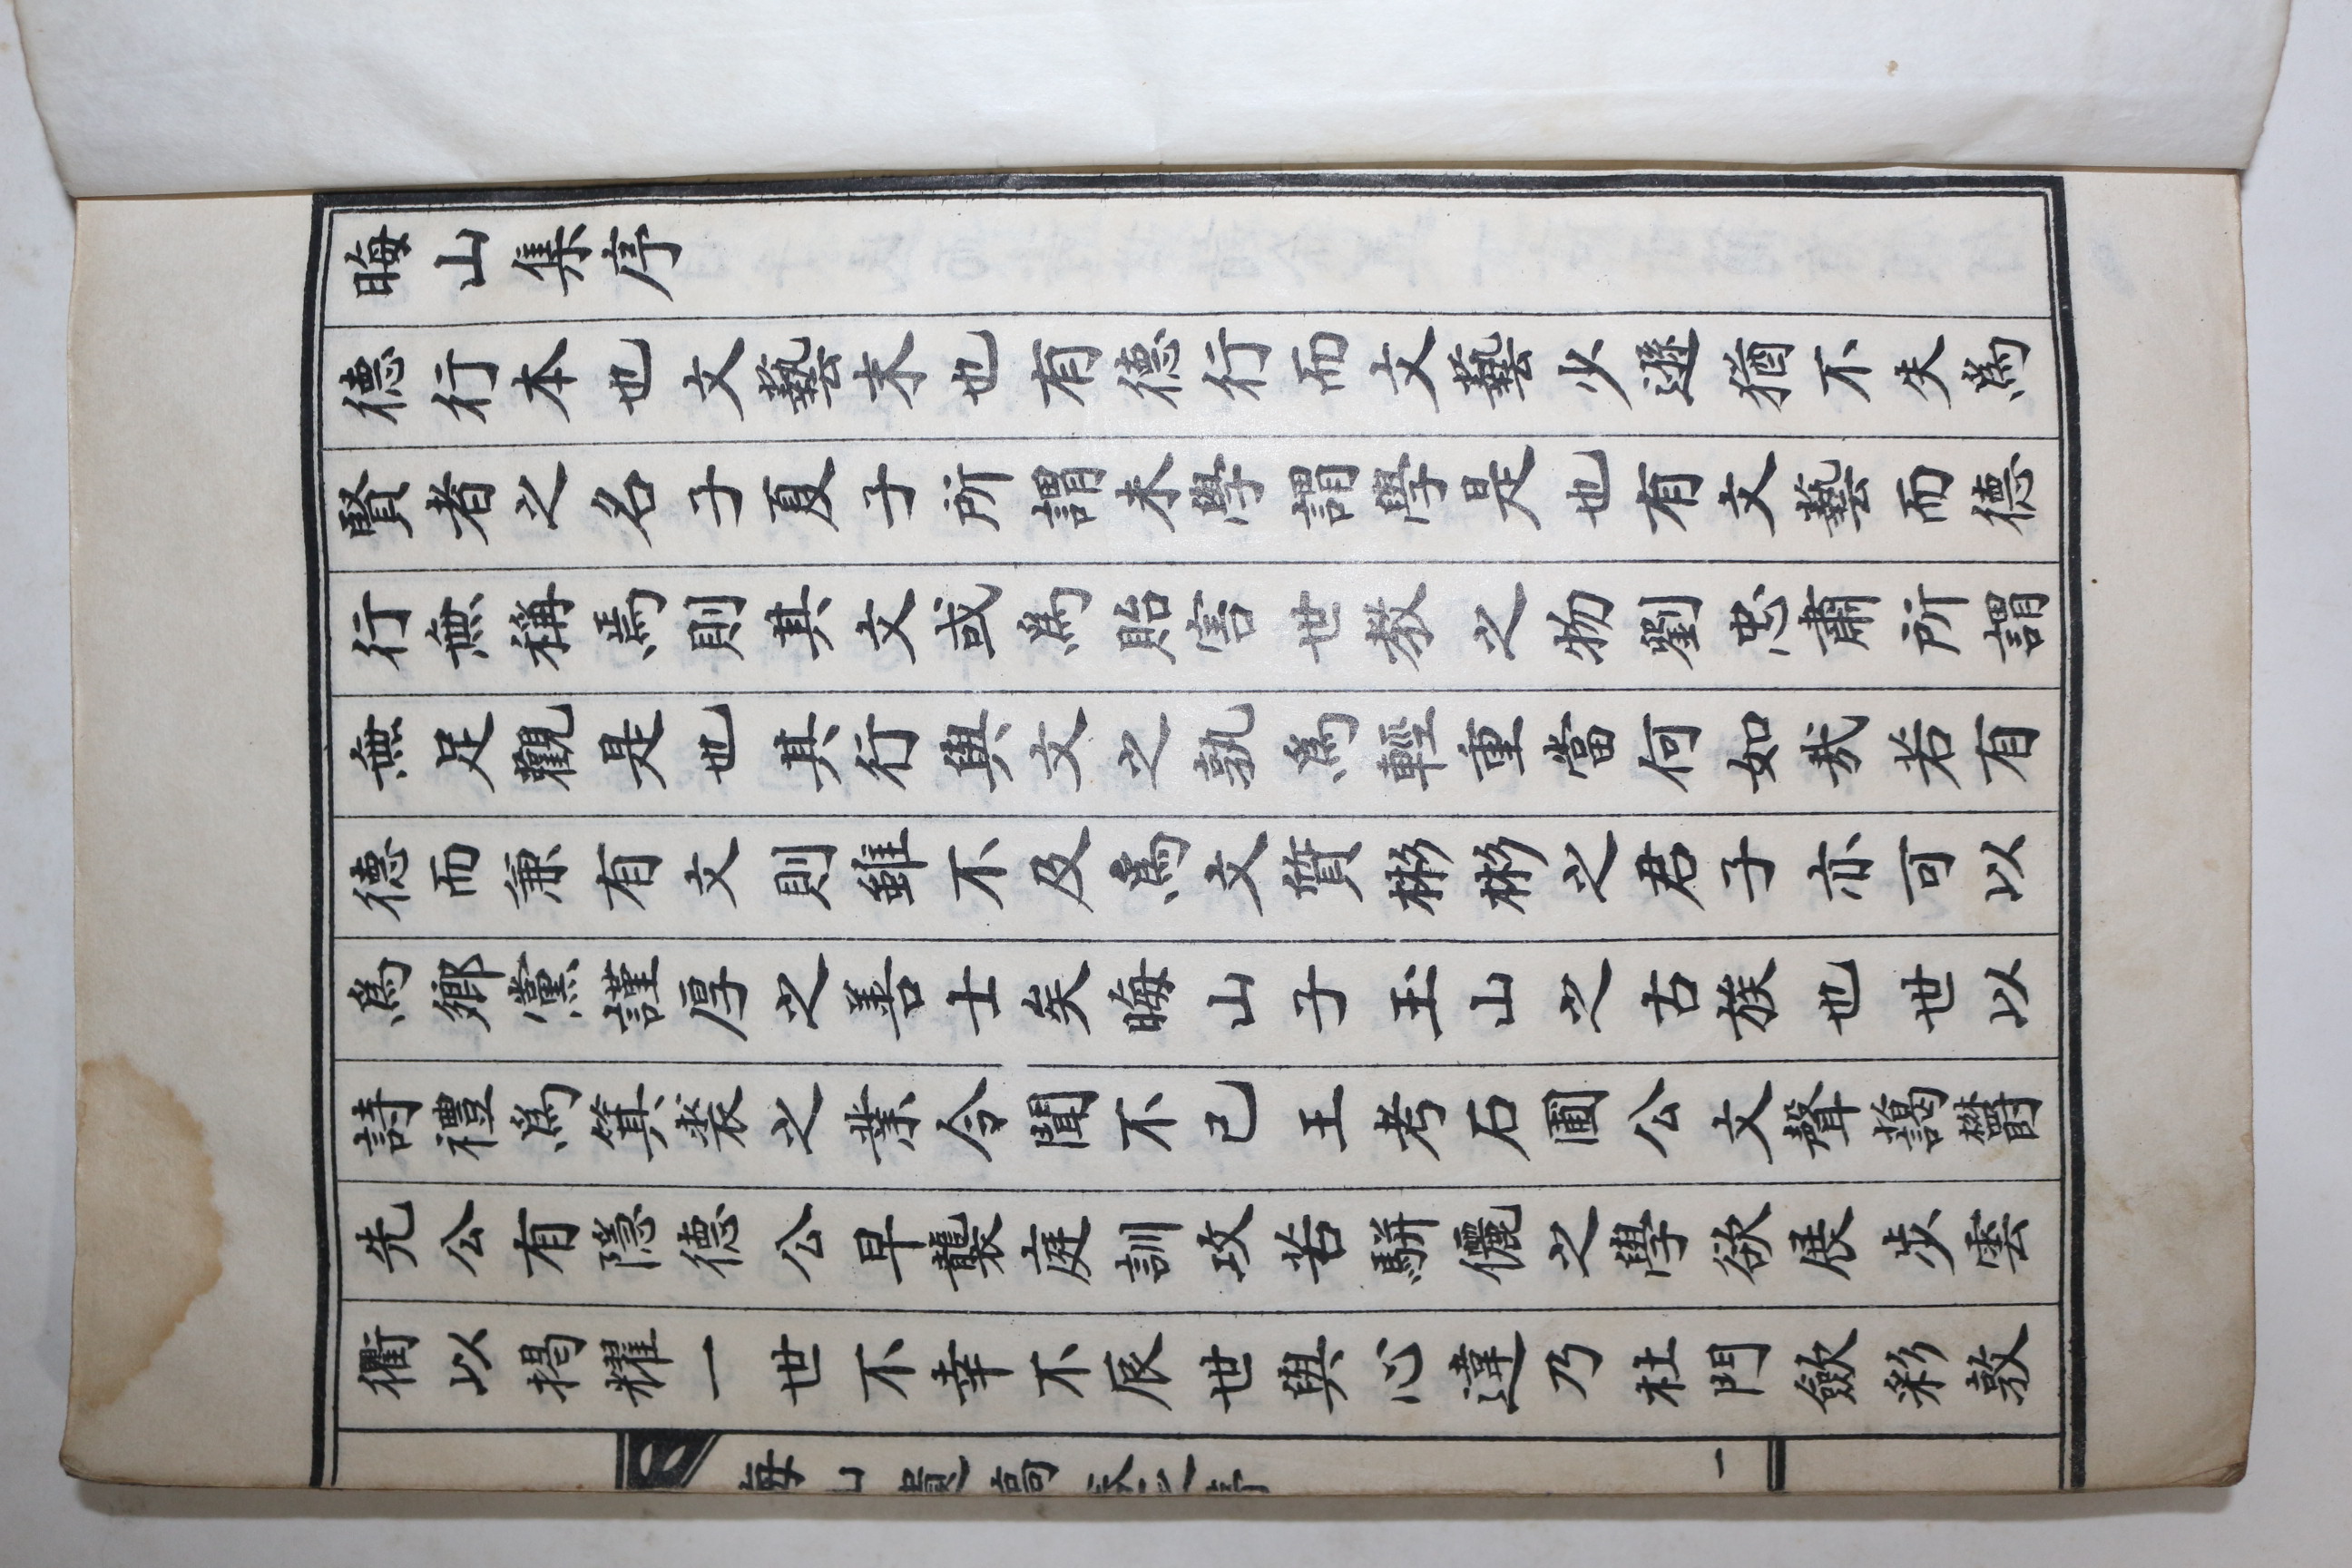 晦山集序
德行本也文藝末也有德行而文藝少遜猶不失爲
賢者之名子夏子所謂未學謂學是也有文藝而德
行無稱焉則其文或爲貽害世教之物劉忠肅所謂
無足觀是也其行與文之孰爲輕重當何如哉若有
德而兼有文則雖不及爲文質彬彬之君子亦可以
爲鄉黨謹厚之善士矣晦山子玉山之古族也世以
詩禮爲箕裘之業令聞不已王考石圃公文聲藹欝
先公有隱德公早襲庭訓攻苦騈儷之學欲展步雲
衢以揭耀一世不幸不辰世與心違乃杜門斂彩敦
晦山遺稿卷之序
一